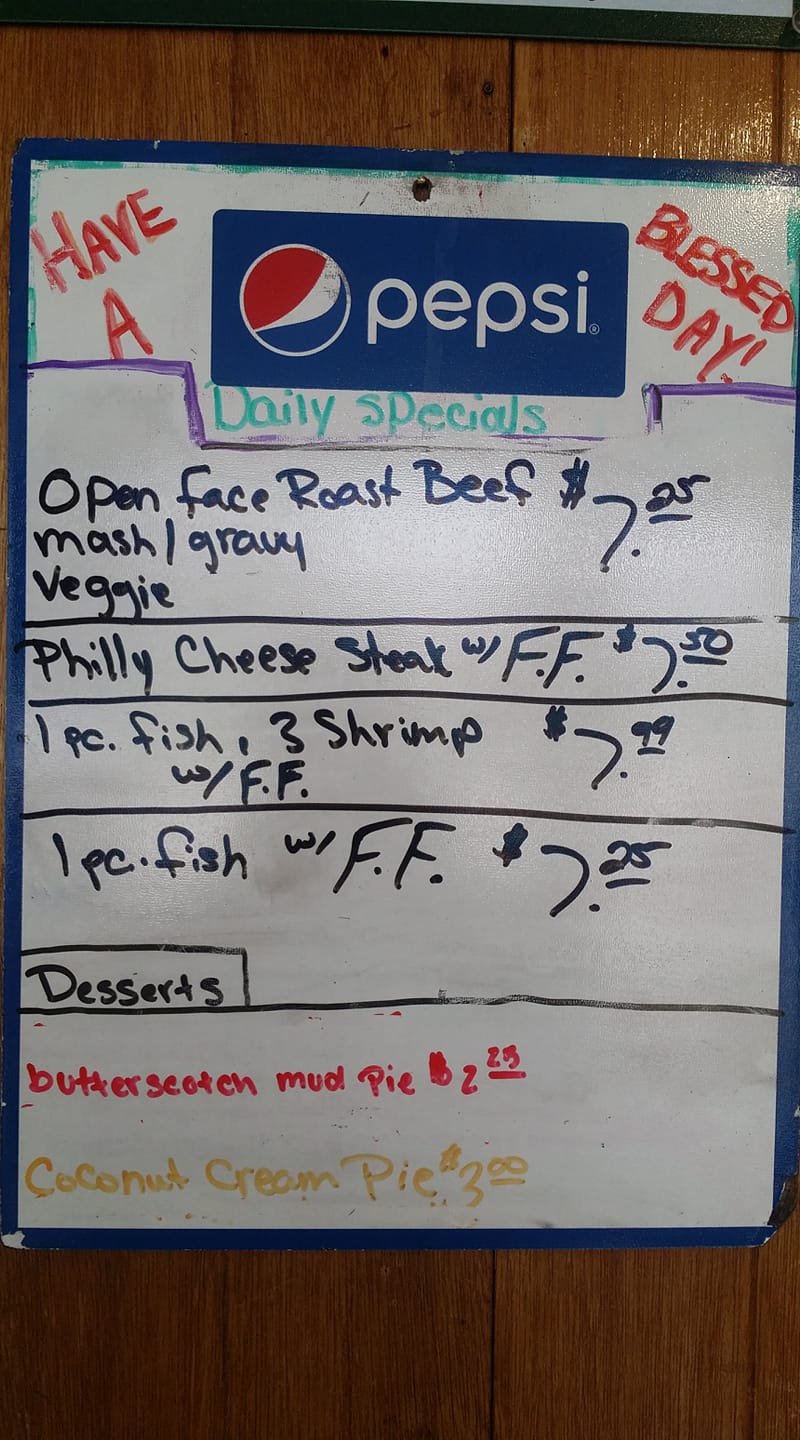 HAVE
A
pepsi®
BLESSED
DAY!
Daily specials
Open face Roast Beef $7.25
mash/gravy
Veggie
Philly Cheese Steak w/ F.F. $7.50
1 pc. fish, 3 Shrimp $7.99
w/ F.F.
1 pc. fish w/ F.F. $7.25
Desserts
butterscotch mud Pie $2 25
Coconut Cream Pie $3 00